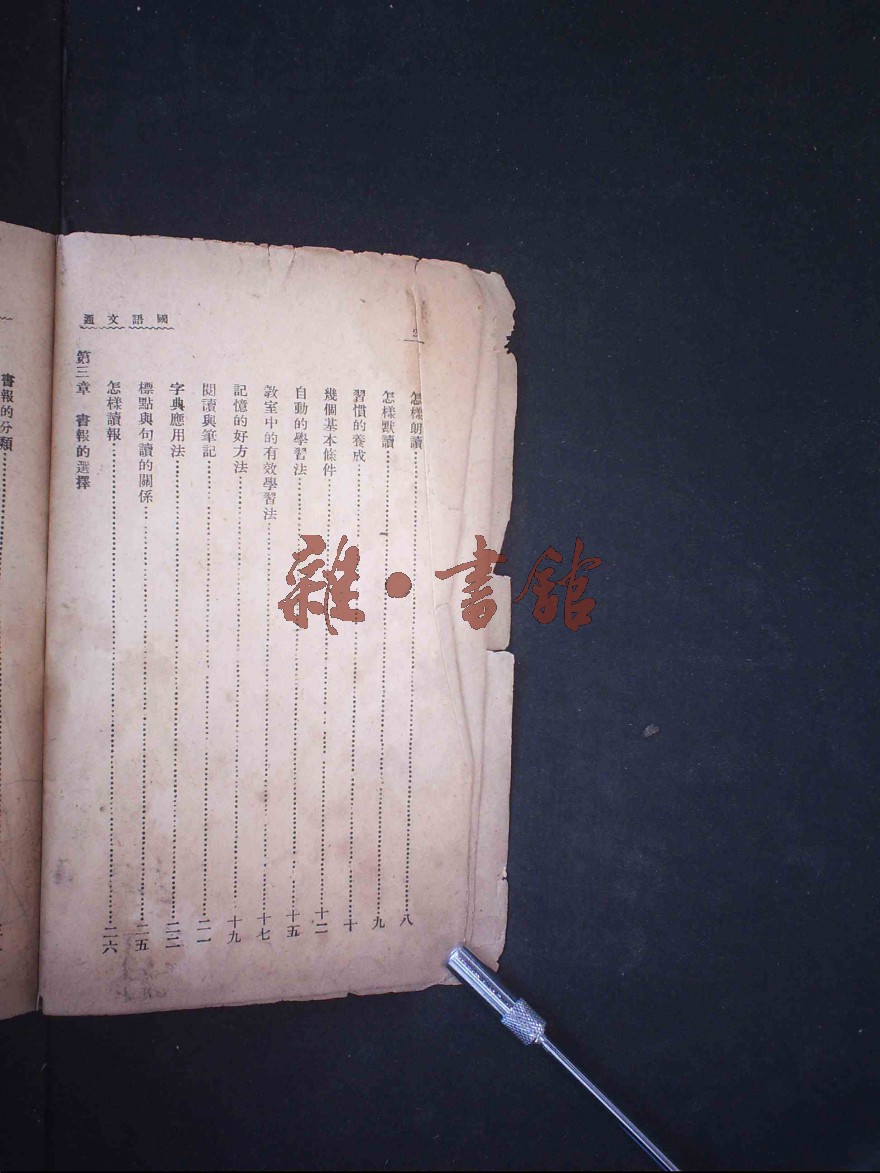 國語文通
2
怎樣朗讀……八
怎樣默讀……九
習慣的養成……十
幾個基本條件……十二
自動的學習法……十五
敎室中的有效學習法……十七
記憶的好方法……十九
閱讀與筆記……二一
字典應用法……二二
標點與句讀的關係……二五
怎樣讀報……二六
第三章 書報的選擇
書報的分類……
雜·書館